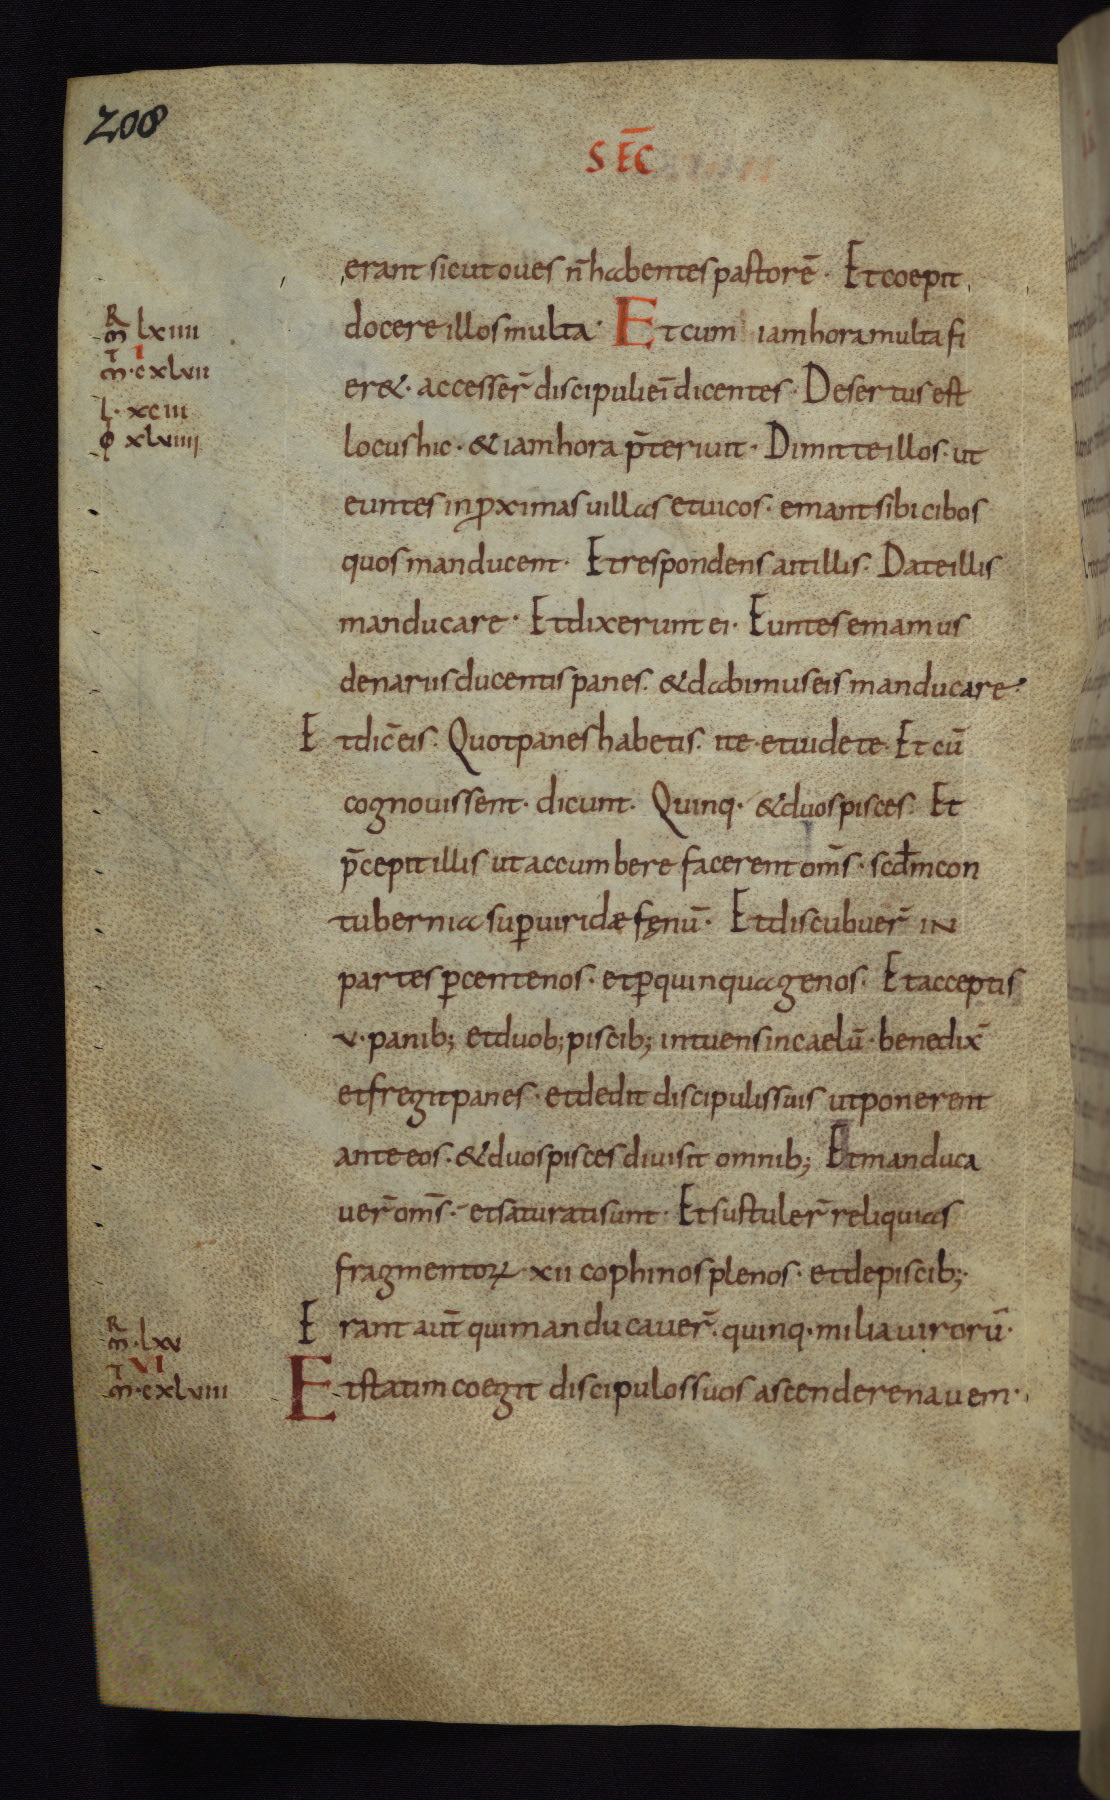 208
SEC̄
erant sicut oues n̄ habentes pastorē · Et coepit
R
m̄ lxiiii
docere illos multa · Et cum iam hora multa fi
T I
m̄ · cxlvii
er& · accesser̄ discipuli ei dicentes · Desertus est
l · xciii
ϕ xlviiii
locus hic · & iam hora p̄teriuit · Dimitte illos · ut
euntes in ꝓximas uillas et uicos · emant sibi cibos
quos manducent · Et respondens ait illis · Date illis
manducare · Et dixerunt ei · Euntes emamus
denariis ducentis panes · & dabimus eis manducare ·
Et dic̄ eis · Quot panes habetis · ite · et uidete · Et cū
cognouissent · dicunt · Quinq · & duos pisces · Et
p̄cepit illis ut accumbere facerent om̄s · scđm con
tubernia suꝑ uiridæ fęnū · Et discubuer̄ in
partes ꝑ centenos · et ꝑ quinquagenos · Et acceptis
v · panib; et duob; piscib; intuens in caelū · benedix̄
et fregit panes · et dedit discipulis suis ut ponerent
ante eos · & duos pisces diuisit omnib; Et manduca
uer̄ om̄s · et saturati sunt · Et sustuler̄ reliquias
fragmentoꝝ xii cophinos plenos · et de piscib; ·
R
m̄ · lxv
Erant aut̄ qui manducauer̄ · quinq · milia uirorū ·
T VI
m̄ · cxlviii
Et statim coegit discipulos suos ascendere nauem ·